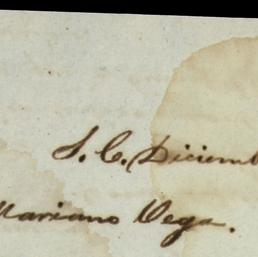 S. C. Diciemb
Mariano Vega.